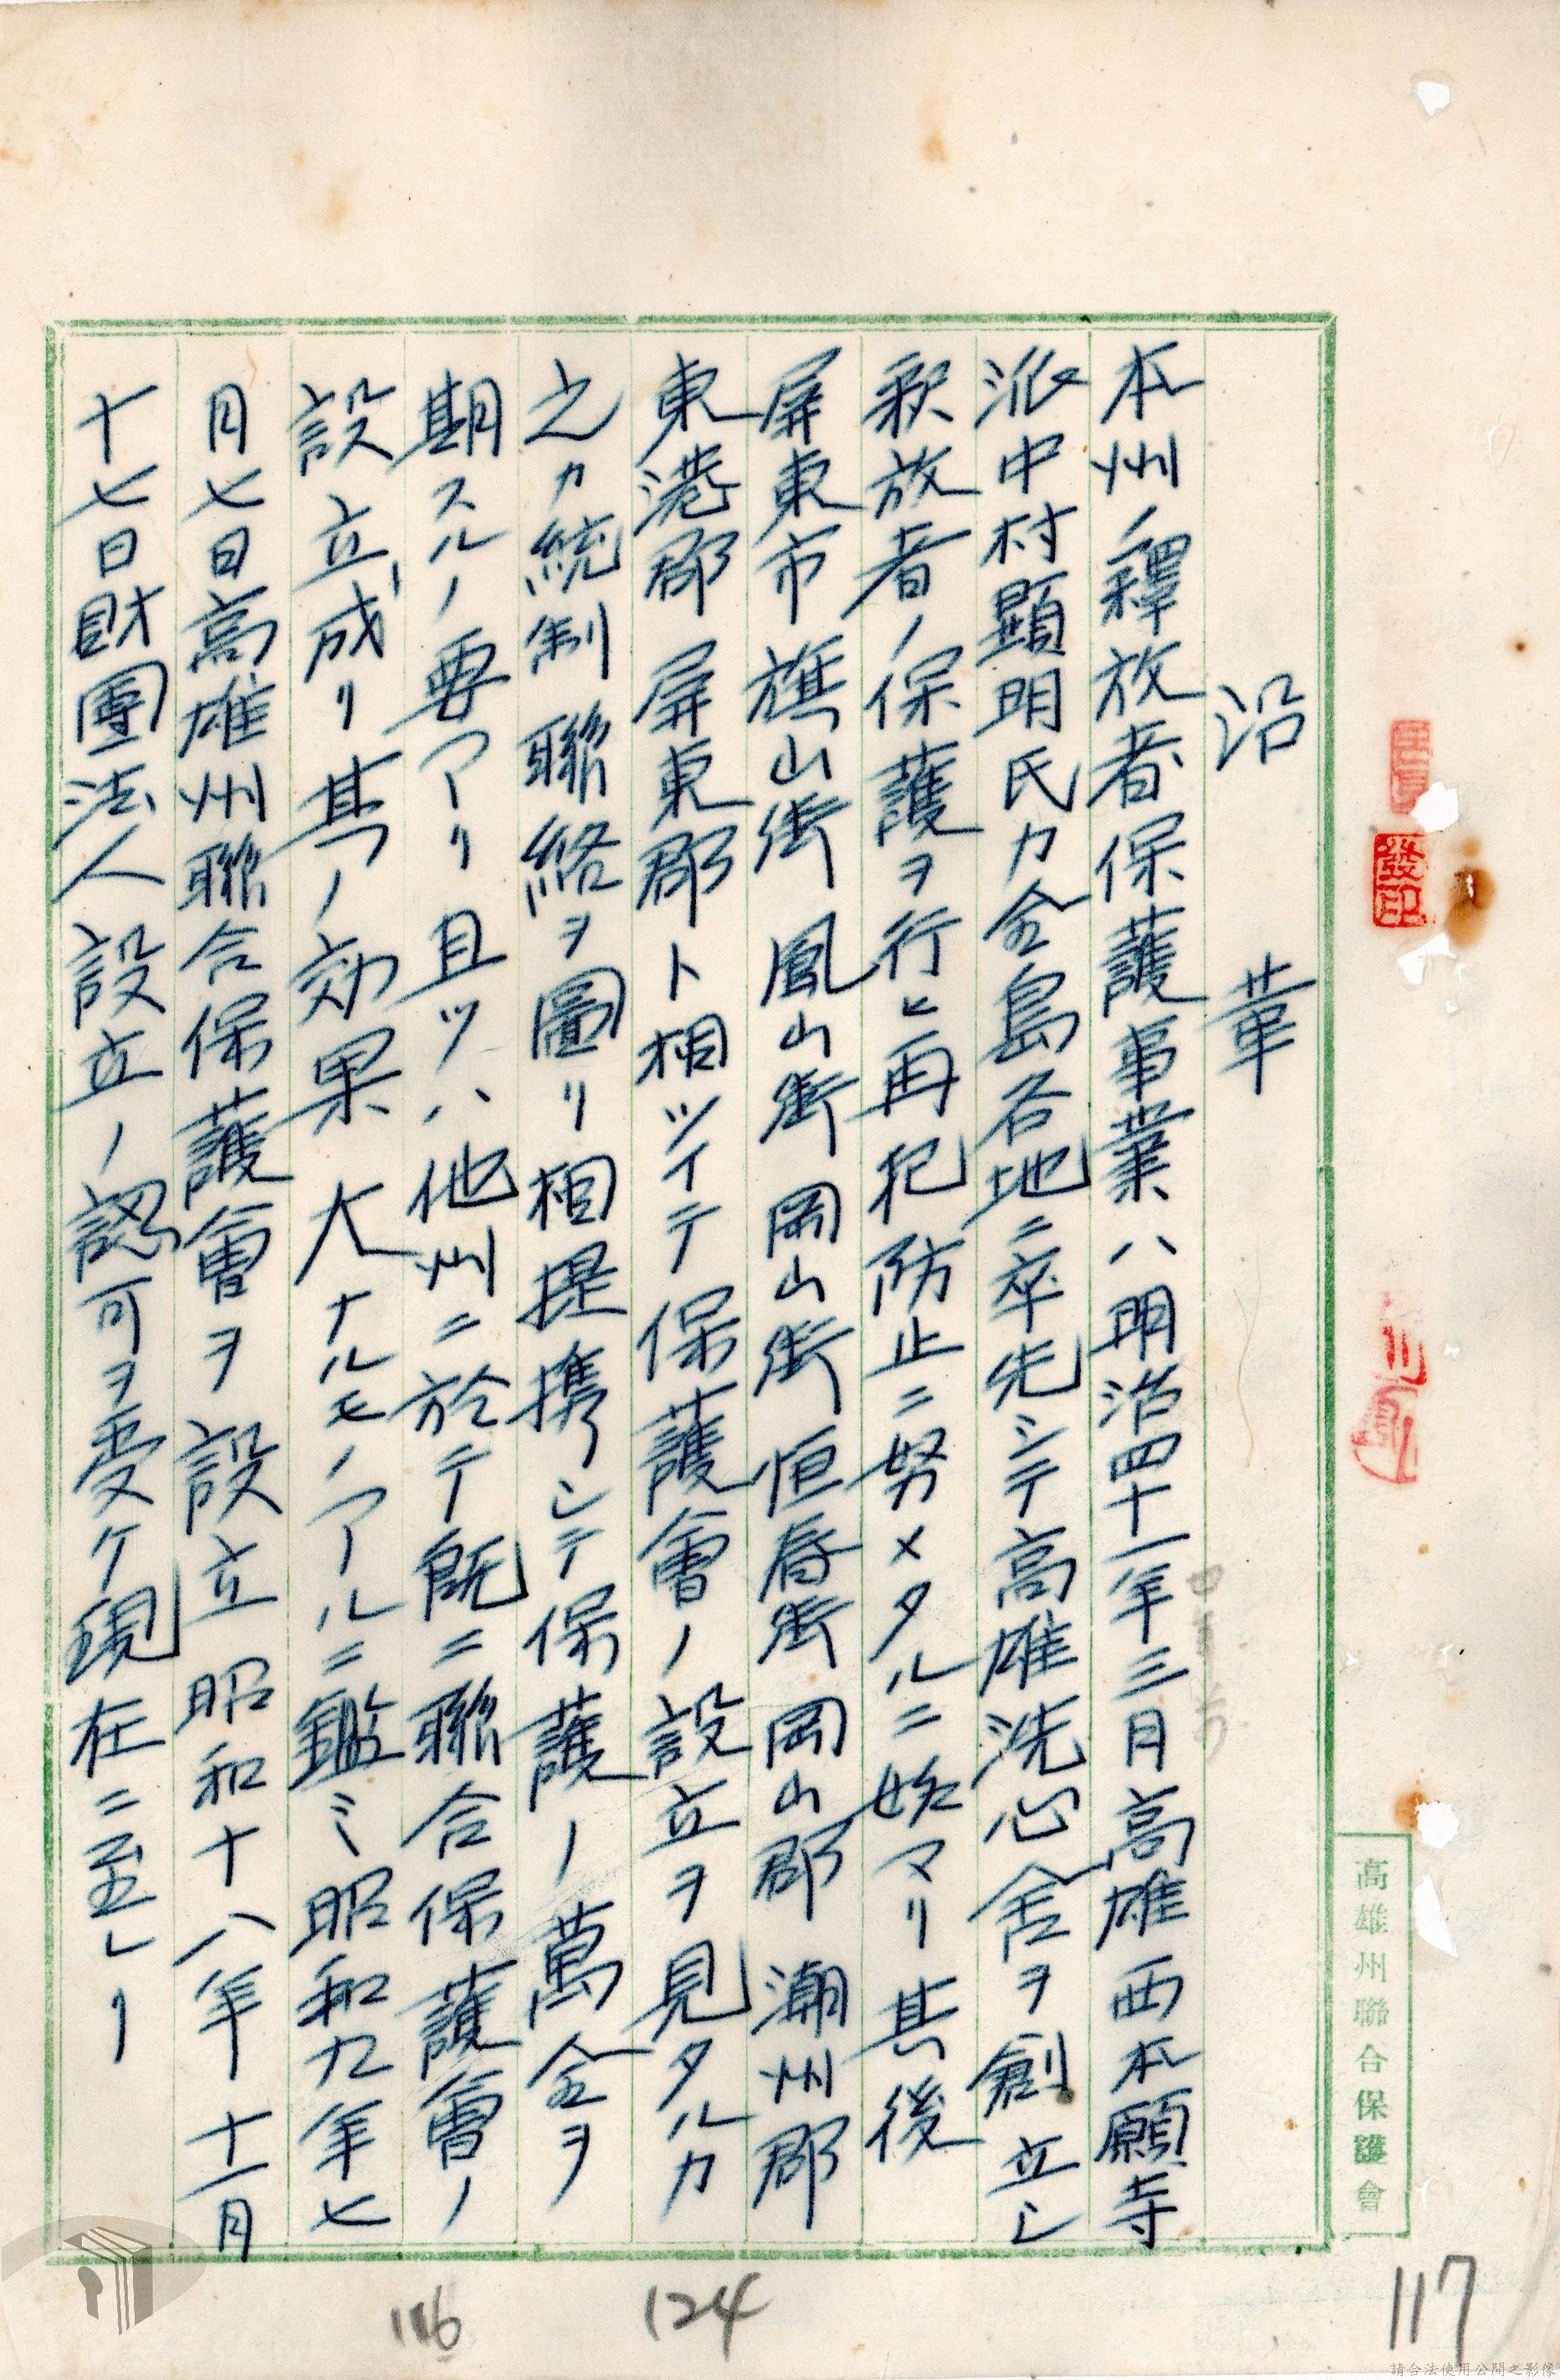 沿革
本州ノ釋放者保護事業ハ明治四十一年三月高雄西本願寺
派中村顯明氏カ全島各地ニ卒先シテ高雄洗心舍ヲ創立シ
釈放者ノ保護ヲ行ヒ再犯防止ニ努メタルニ始マリ其後
屏東市旗山街鳳山街岡山街恒春街岡山郡潮州郡
東港郡屏東郡ト相ツイテ保護會ノ設立ヲ見タルカ
之カ統制聯絡ヲ圖リ相提携シテ保護ノ萬全ヲ
期スルノ要アリ且ツハ他州ニ於テ既ニ聯合保護會ノ
設立成リ其ノ効果大ナルモノアルニ鑑ミ昭和九年七
月七日高雄州聯合保護會ヲ設立昭和十八年十一月
十七日財團法人設立ノ認可ヲ受ケ現在ニ至レリ
高雄州聯合保護會
發印
117
124
116
請合法使用公開之影像